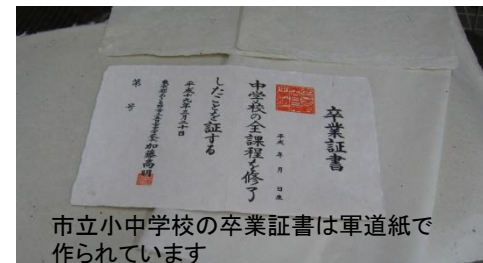 卒業証書
平成 年 月 日生
中学校の全課程を修了
したことを証する
平成十九年三月二十日
加藤高明
第 号
市立小中学校の卒業証書は軍道紙で
作られています